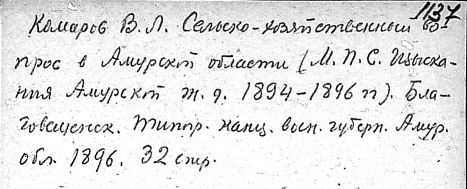 1137
Комаров В. Л. Сельско-хозяйственный во-
прос в Амурской области (М. П. С. Изыска-
ния Амурской ж. д. 1894-1896 гг). Бла-
говещенск. Типогр. канц. воен. губерн. Амур.
обл. 1896. 32 стр.